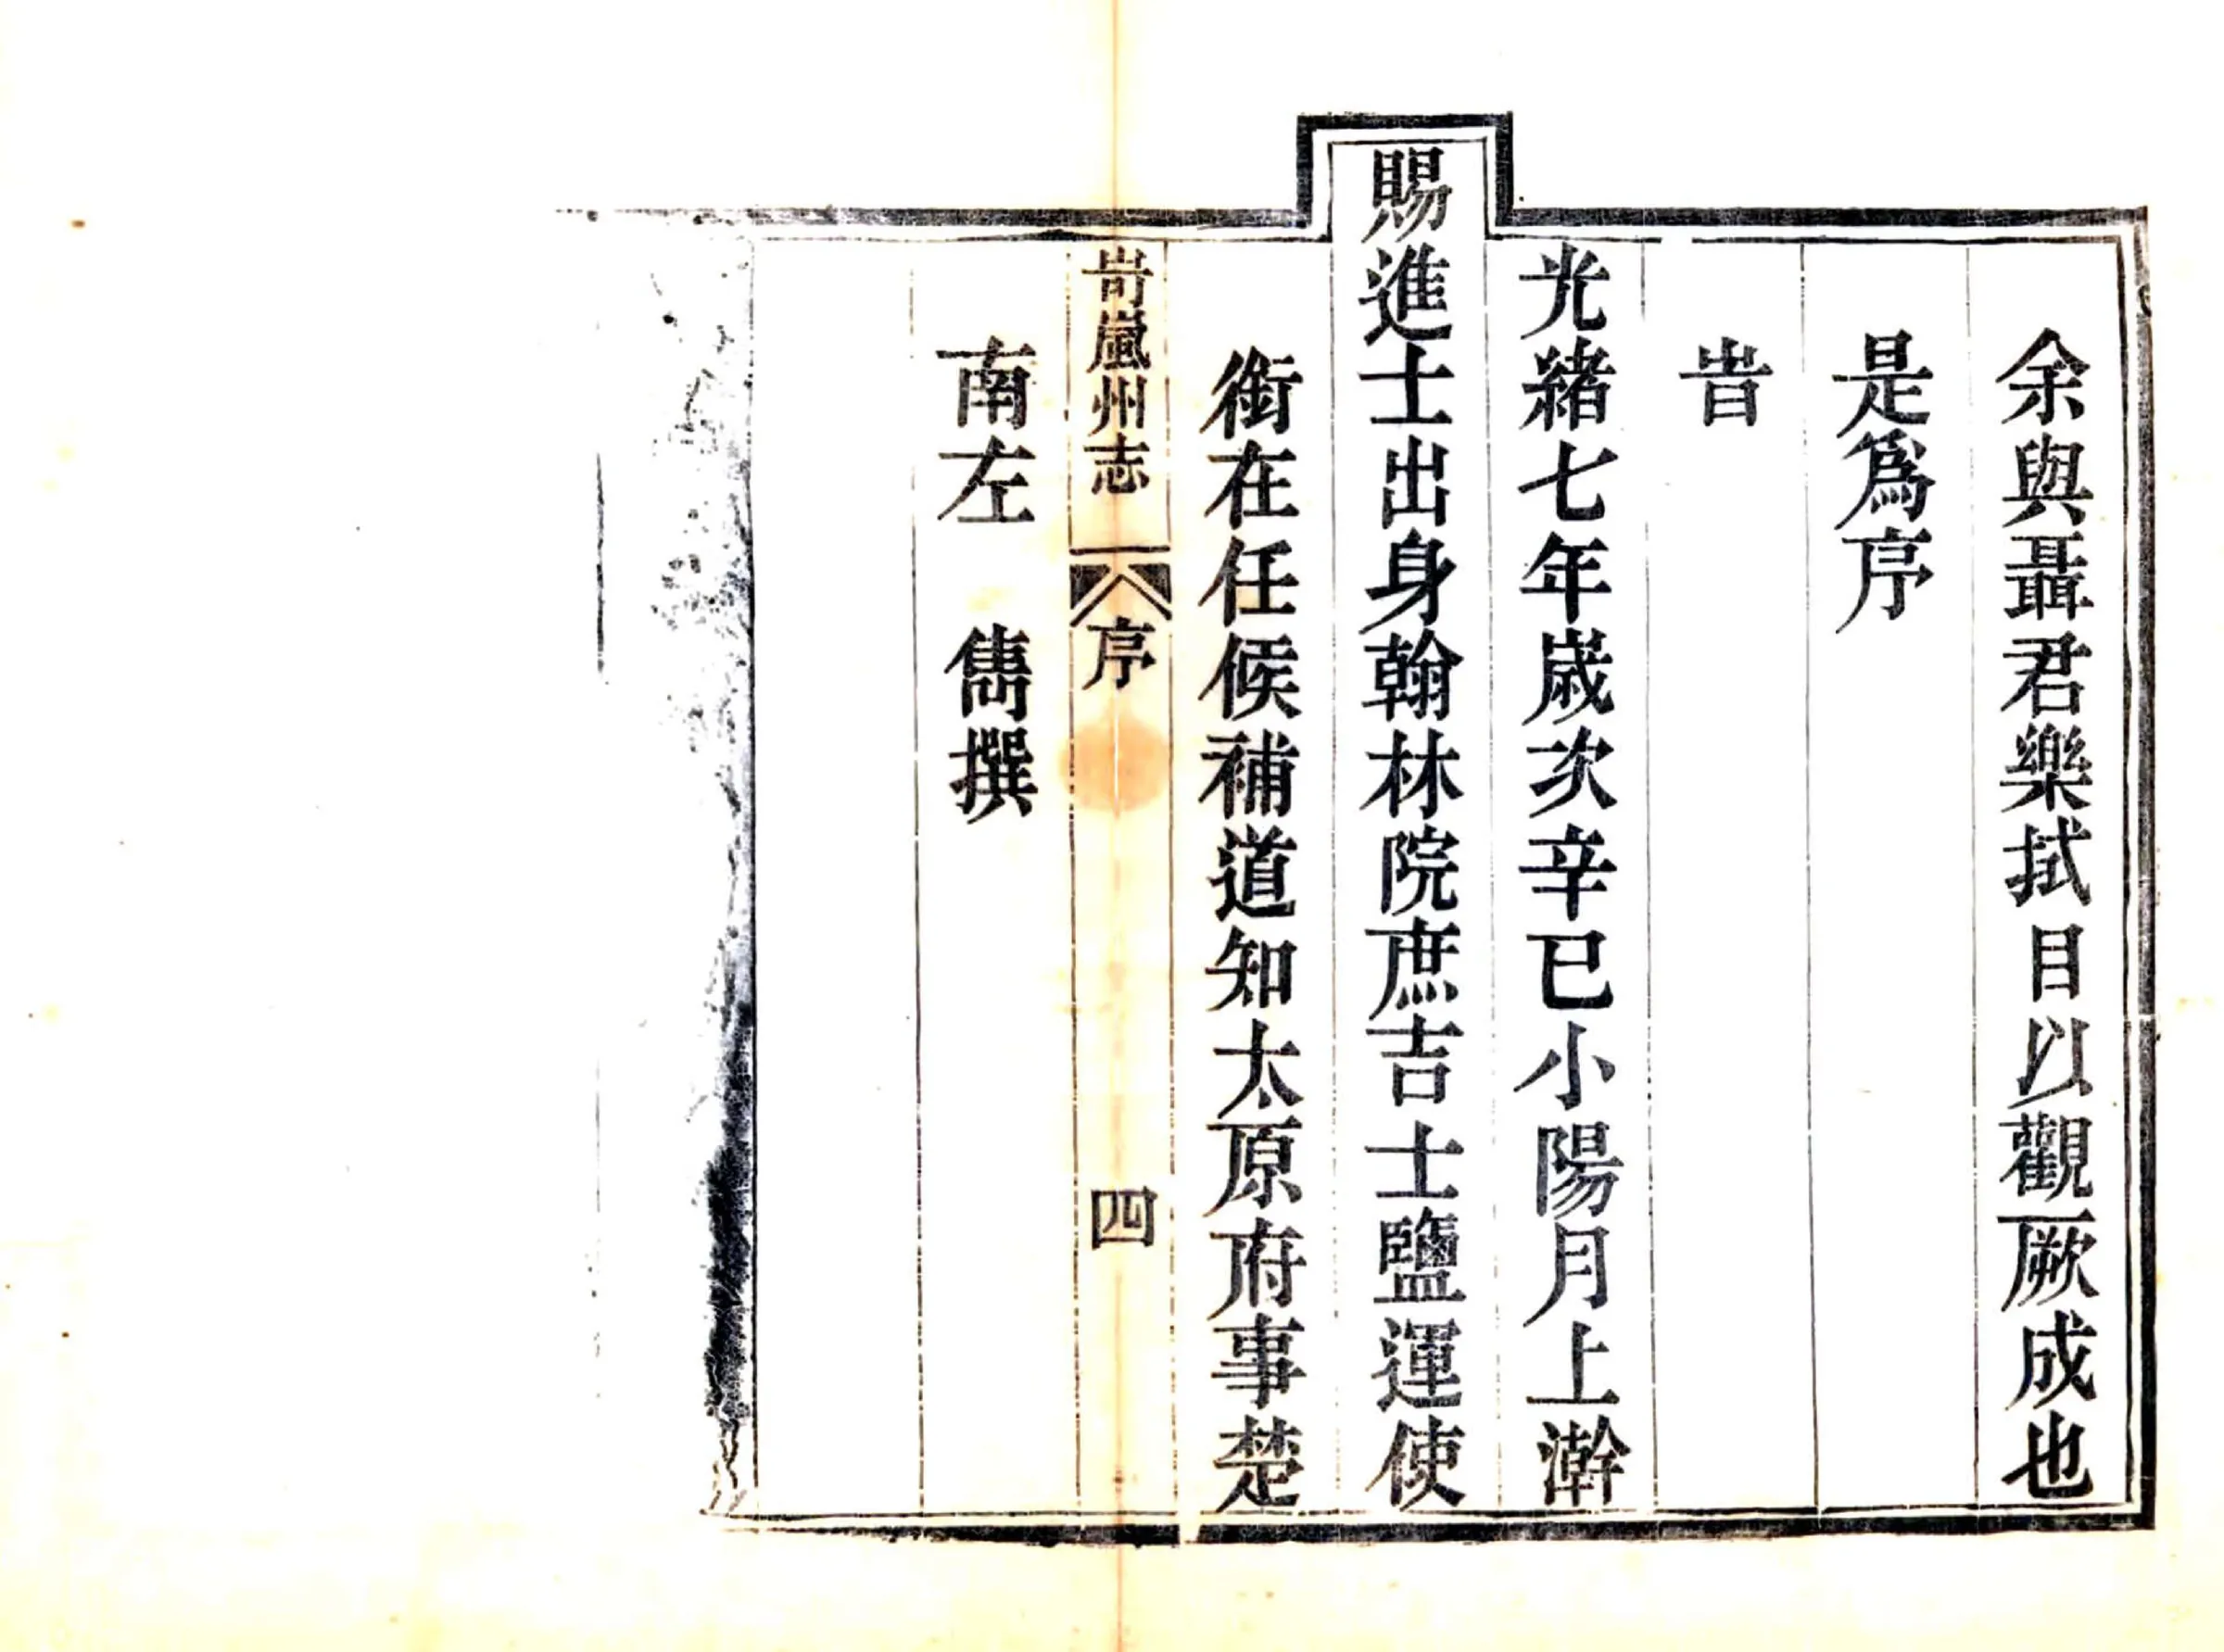 余與聶君樂拭目以觀厥成也
是爲序
旹
光緒七年歲次辛巳小陽月上澣
賜進士出身翰林院庶吉士鹽運使
銜在任候補道知太原府事楚
岢嵐州志 序 四
南左 雋撰